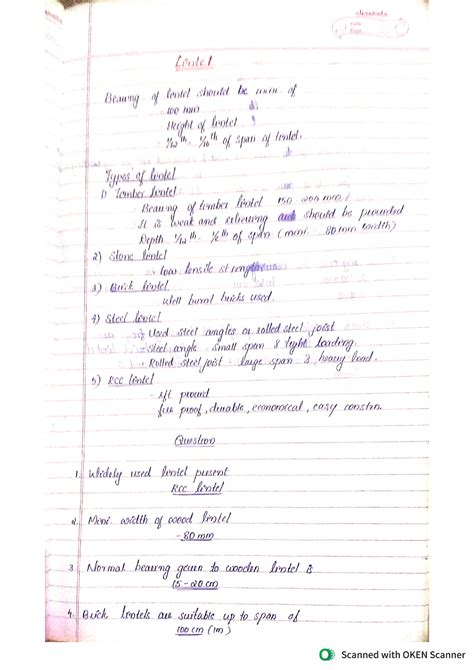 classmate
Date
Page
Lintel
Bearing of lintel should be min. of
100 mm
Height of lintel
1/12th - 1/10th of span of lintel.
Types of lintel
1) Timber lintel:
- Bearing of timber lintel 150 200 mm
- It is weak and relieving should be provided
- Depth 1/12th - 1/8th of span (mini - 80mm width)
2) Stone lintel
- low tensile strength
3) Brick lintel
well burnt bricks used.
4) Steel lintel
- Used steel angles or rolled steel joist
- Steel angle - small span & light loading
- Rolled steel joist - large span & heavy load.
5) RCC lintel
-
fire proof, durable, economical, easy constrn.
Question
1. Widely used lintel present
RCC lintel
2. Mini width of wood lintel
- 80 mm
3 Normal bearing given to wooden lintel is
15-20 cm
4. Brick lintels are suitable up to span of
100 cm (1m)
Scanned with OKEN Scanner